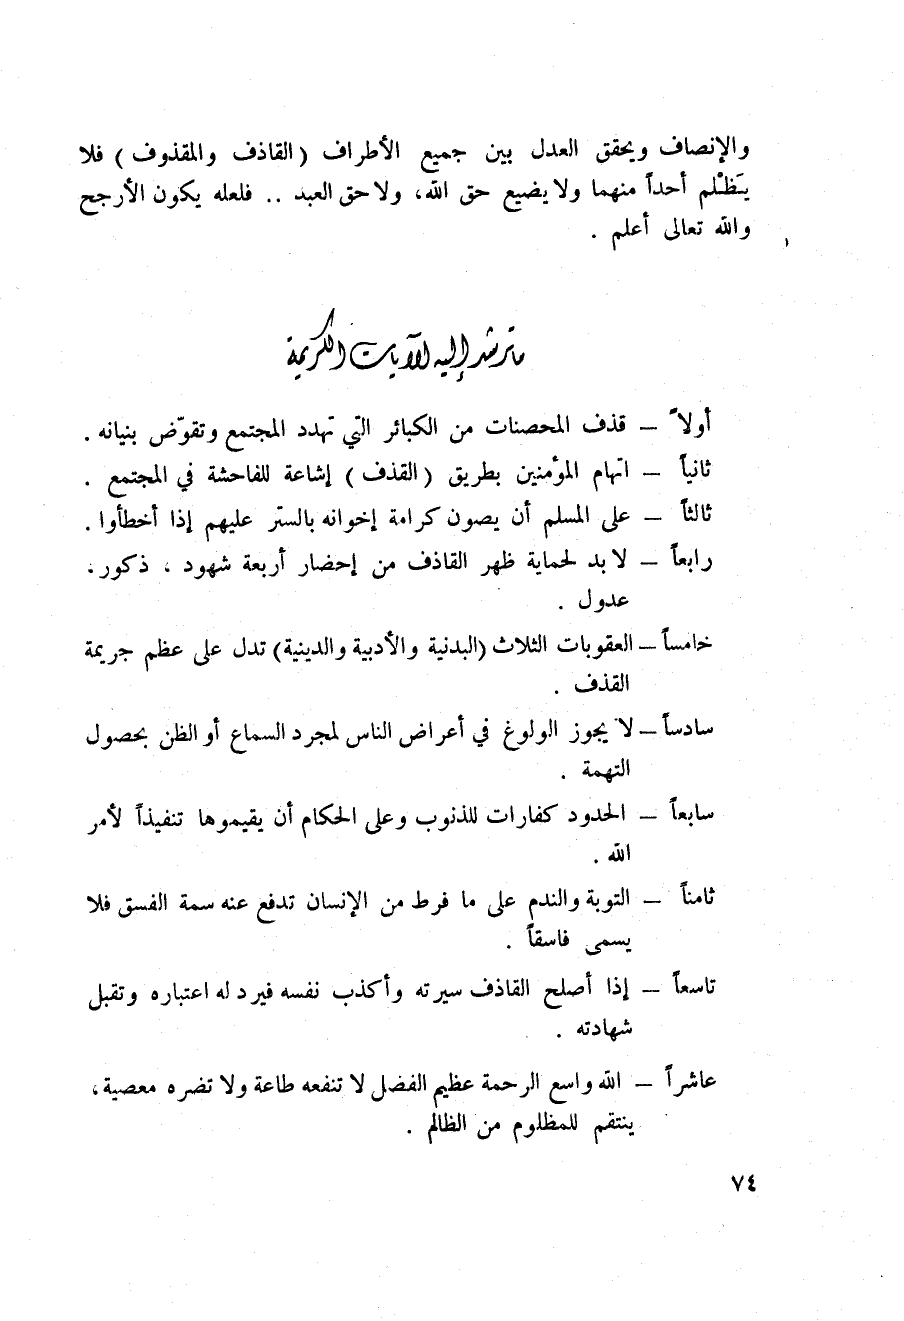 والإنصاف ويحقق العدل بين جميع الأطراف (القاذف والمقذوف) فلا
يَظْلم أحداً منهما ولا يضيع حق الله، ولا حق العبد .. فلعله يكون الأرجح
والله تعالى أعلم .
ما ترشد إليه الآيات الكريمة
أولاً – قذف المحصنات من الكبائر التي تهدد المجتمع وتقوّض بنيانه .
ثانياً – اتهام المؤمنين بطريق (القذف) إشاعة للفاحشة في المجتمع .
ثالثاً – على المسلم أن يصون كرامة إخوانه بالستر عليهم إذا أخطأوا .
رابعاً – لا بد لحماية ظهر القاذف من إحضار أربعة شهود ، ذكور،
عدول .
خامساً – العقوبات الثلاث (البدنية والأدبية والدينية) تدل على عظم جريمة
القذف .
سادساً – لا يجوز الولوغ في أعراض الناس لمجرد السماع أو الظن بحصول
التهمة .
سابعاً – الحدود كفارات للذنوب وعلى الحكام أن يقيموها تنفيذاً لأمر
الله .
ثامناً – التوبة والندم على ما فرط من الإنسان تدفع عنه سمة الفسق فلا
يسمى فاسقاً .
تاسعاً – إذا أصلح القاذف سيرته وأكذب نفسه فيرد له اعتباره وتقبل
شهادته .
عاشراً – الله واسع الرحمة عظيم الفضل لا تنفعه طاعة ولا تضره معصية،
ينتقم للمظلوم من الظالم .
٧٤